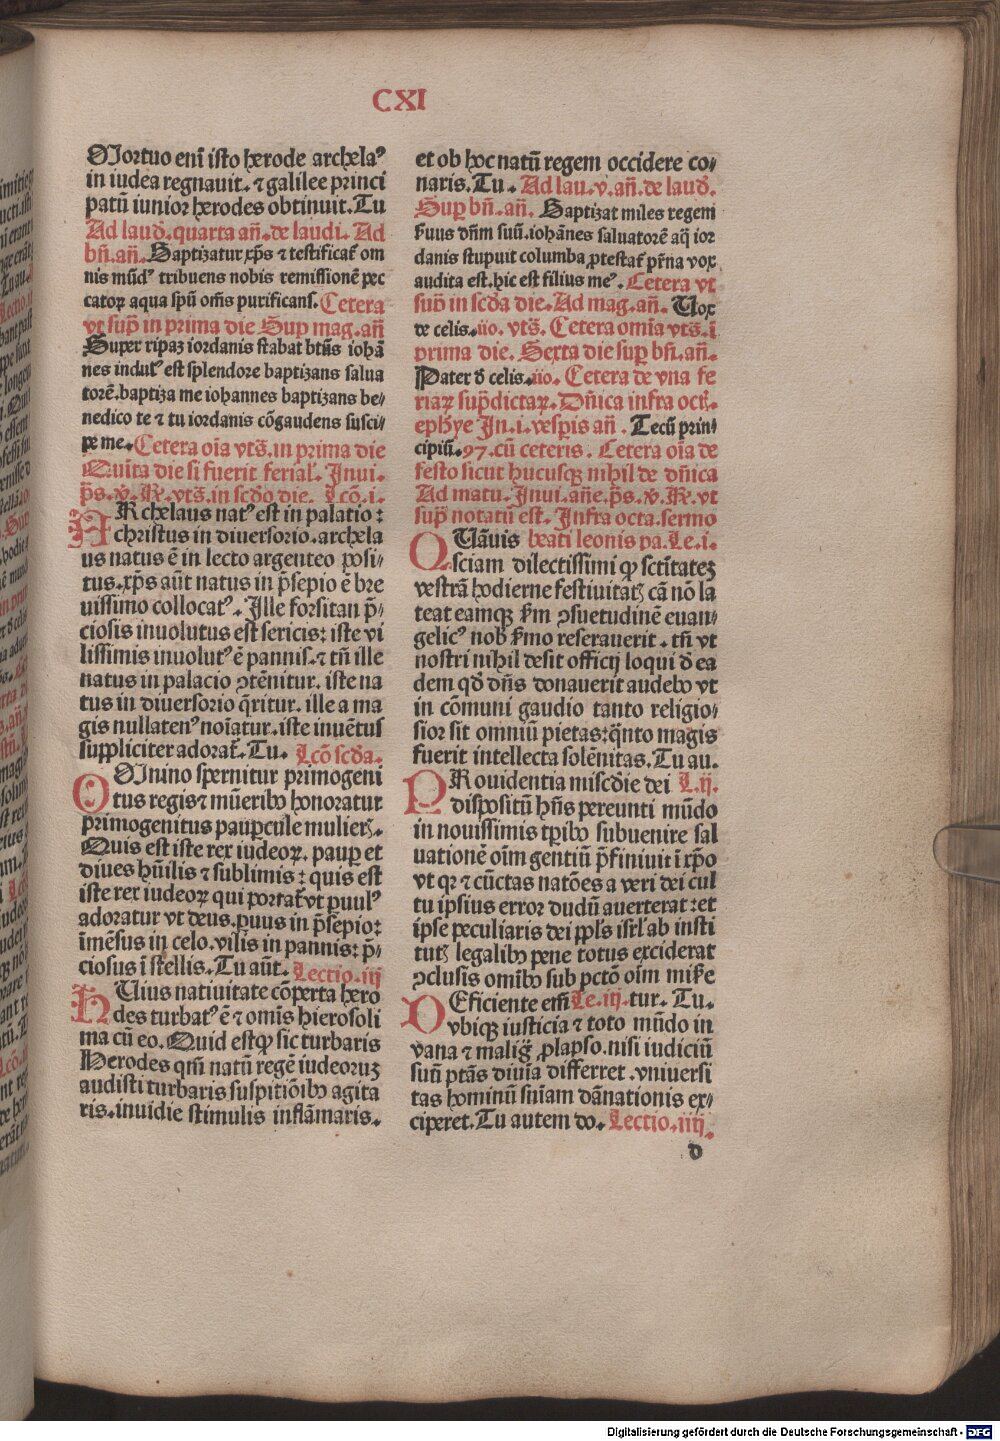 CXI
Mortuo eni̅ isto herode archelaꝰ
in iudea regnauit. ⁊ galilee princi
patu̅ iunior herodes obtinuit. Tu
Ad laud̛. quarta an̅. de laudi. Ad
bn̅. an̅. Baptizatur xp̅s ⁊ testificat᷑ om
nis mu̅dꝰ tribuens nobis remissione̅ pec
catoꝝ aqua spu̅ om̅s purificans. Cetera
vt supͥ in prima die Sup mag. an̅
Super ripaꝫ iordanis stabat bt̅us ioha̅
nes indutꝰ est splendore baptizans salua
tore̅. baptiza me iohannes baptizans be⸗
nedico te ⁊ tu iordanis co̅gaudens susci⸗
pe me. Cetera oi̅a vts̅. in prima die
Qui̅ta die si fuerit ferial᷑. Inui⸗
p̅s. v̅. R̅. vts̅. in sc̅do die. Lco̅. i.
ARchelaus natꝰ est in palatio:
christus in diuersorio. archela
us natus e̅ in lecto argenteo posi⸗
tus. xp̅s au̅t natus in p̅sepio e̅ bre
uissimo collocatꝰ. Ille forsitan p̅⸗
ciosis inuolutus est sericis: iste vi
lissimis inuolutꝰ e̅ pannis. ⁊ tn̅ ille
natus in palacio ꝯte̅nitur. iste na
tus in diuersorio q̅ritur. ille a ma
gis nullatenꝰ noi̅atur. iste inue̅tus
suppliciter adorat᷑. Tu. Lco̅ sc̅da.
OMnino spernitur primogeni
tus regis ⁊ mu̅eribꝫ honoratur
primogenitus paup̲cule mulierꝭ.
Quis est iste rex iudeoꝝ. paup̲ et
diues hu̅ilis ⁊ sublimis: quis est
iste rex iudeoꝝ qui portat᷑ vt p̲uulꝰ
adoratur vt deus. p̲uus in p̅sepio:
i̅me̅sus in celo. vilis in pannis: p̅⸗
ciosus i̅ stellis. Tu au̅t. Lectio. iij
HUius natiuitate co̅perta hero
des turbatꝰ e̅ ⁊ omis hierosoli
ma cu̅ eo. Quid est qͥ sic turbaris
Herodes qm̅ natu̅ rege̅ iudeoruꝫ
audisti turbaris suspitio̅ibꝫ agita
ris. inuidie stimulis infla̅maris.
et ob hoc natu̅ regem occidere co⸗
naris. Tu. Ad lau. v. an̅. de laud̛.
Sup̲ bn̅. an̅. Baptizat miles regem
ẜuus dn̅m suu̅. ioha̅nes saluatore̅ aq̅ ior
danis stupuit columba ꝓtestat᷑ pr̅na vox
audita est. hic est filius meꝰ. Cetera vt
supͥ in sc̅da die. Ad mag. an̅. Uox
de celis. iio. vts̅. Cetera omi̅a vts̅. i̅
prima die. Sexta die sup̲ bn̅. an̅.
Pater d̛ celis. iio. Cetera de vna fe
riaꝝ sup̅dictaꝝ. Dn̅ica infra oct̅.
eph̅ye In. i. vesp̲is an̅. Tecu̅ prin⸗
cipiu̅. 97. cu̅ ceteris. Cetera oi̅a de
festo sicut hucusqꝫ nihil de dn̅ica
Ad matu. Inui. an̅e. p̅s. v̅. R̅. vt
supͥ notatu̅ est. Infra octa. sermo
QUa̅uis beati leonis pa. Le. i.
sciam dilectissimi qͥ sc̅titateꝫ
vestra̅ hodierne festiuitatꝭ ca̅ no̅ la
teat eamqꝫ ẜm ꝯsuetudine̅ euan⸗
gelicꝰ nob̅ ẜmo reserauerit. tn̅ vt
nostri nihil desit officij loqui d̛ ea
dem qd̛ dn̅s donauerit audebo vt
in co̅muni gaudio tanto religio⸗
sior sit omniu̅ pietas: q̅nto magis
fuerit intellecta sole̅nitas. Tu au.
PRouidentia misc̅die dei L. ij.
dispositu̅ hn̅s pereunti mu̅do
in nouissimis tp̲ibꝫ subuenire sal
uatione̅ oi̅m gentiu̅ p̅finiuit i̅ xp̅o
vt qꝛ ⁊ cu̅ctas nato̅es a veri dei cul
tu ipsius error dudu̅ auerterat: et
ipse peculiaris dei pp̅ls isrl̅ ab insti
tutꝭ legalibꝫ pene totus exciderat
ꝯclusis omibꝫ sub pc̅to oi̅m mi
DEficiente etsi Le. iij. tur. Tu.
vbiqꝫ iusticia ⁊ toto mu̅do in
vana ⁊ malig̅ ꝓlapso. nisi iudiciu̅
suu̅ pt̅as diui̅a differret. vniuersi
tas hominu̅ sn̅iam da̅nationis ex⸗
ciperet. Tu autem do. Lectio. iiij.
d
Digitalisierung gefördert durch die Deutsche Forschungsgemeinschaft - DFG